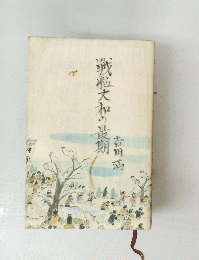 戦艦大和の最期
吉田満